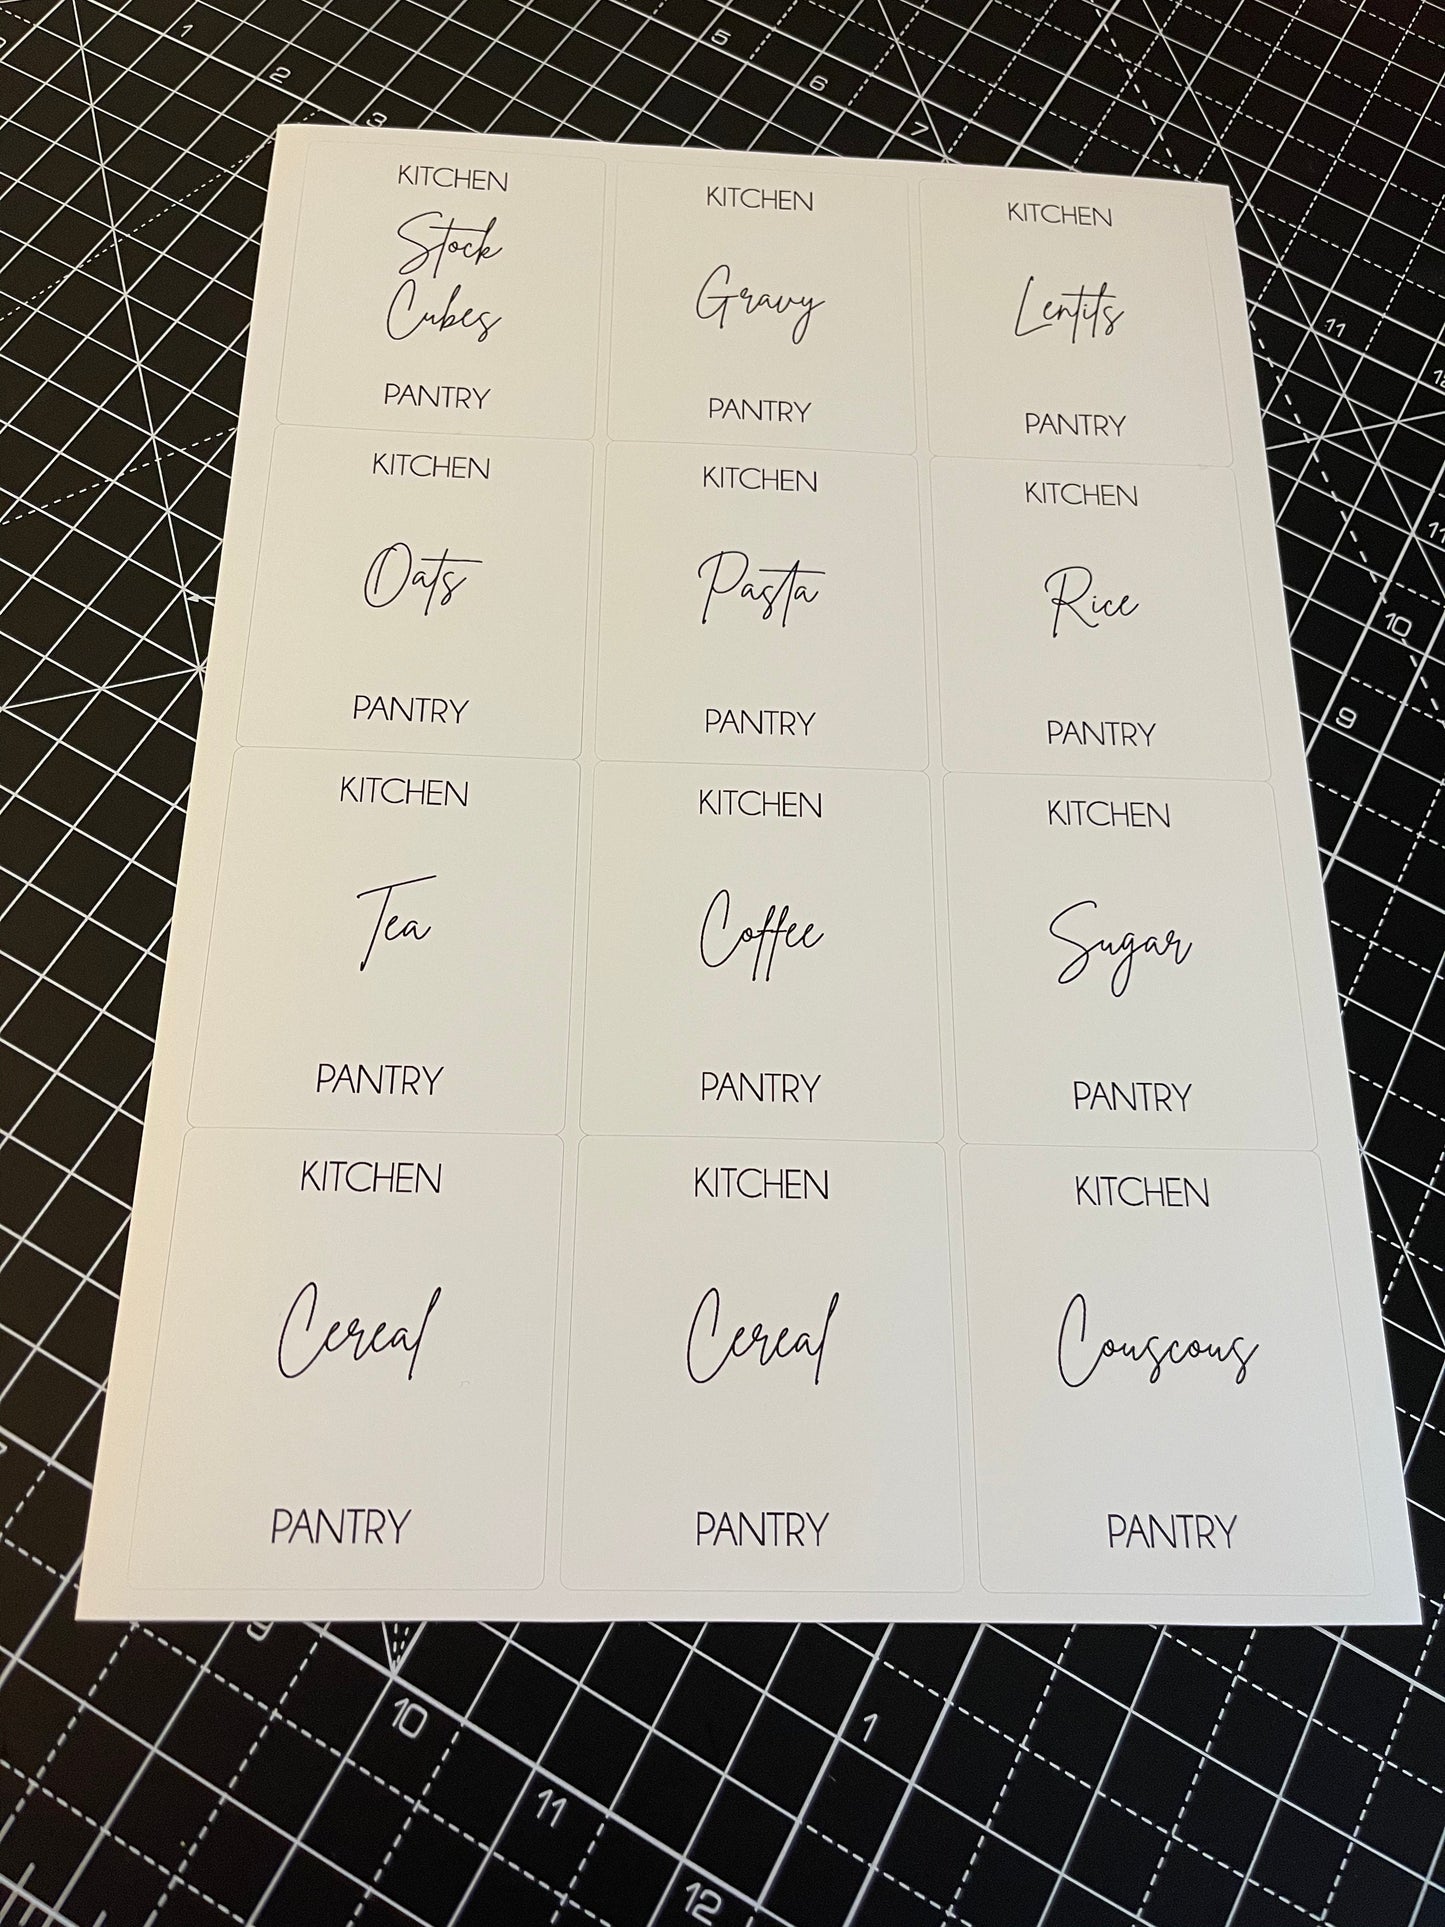 1
2
3
5
6
7
KITCHEN
Stock
Cubes
PANTRY
KITCHEN
Gravy
PANTRY
KITCHEN
Lentils
PANTRY
11
KITCHEN
Oats
PANTRY
KITCHEN
Pasta
PANTRY
KITCHEN
Rice
PANTRY
11
10
9
KITCHEN
Tea
PANTRY
KITCHEN
Coffee
PANTRY
KITCHEN
Sugar
PANTRY
KITCHEN
Cereal
PANTRY
KITCHEN
Cereal
PANTRY
KITCHEN
Couscous
PANTRY
9
10
1
11
12